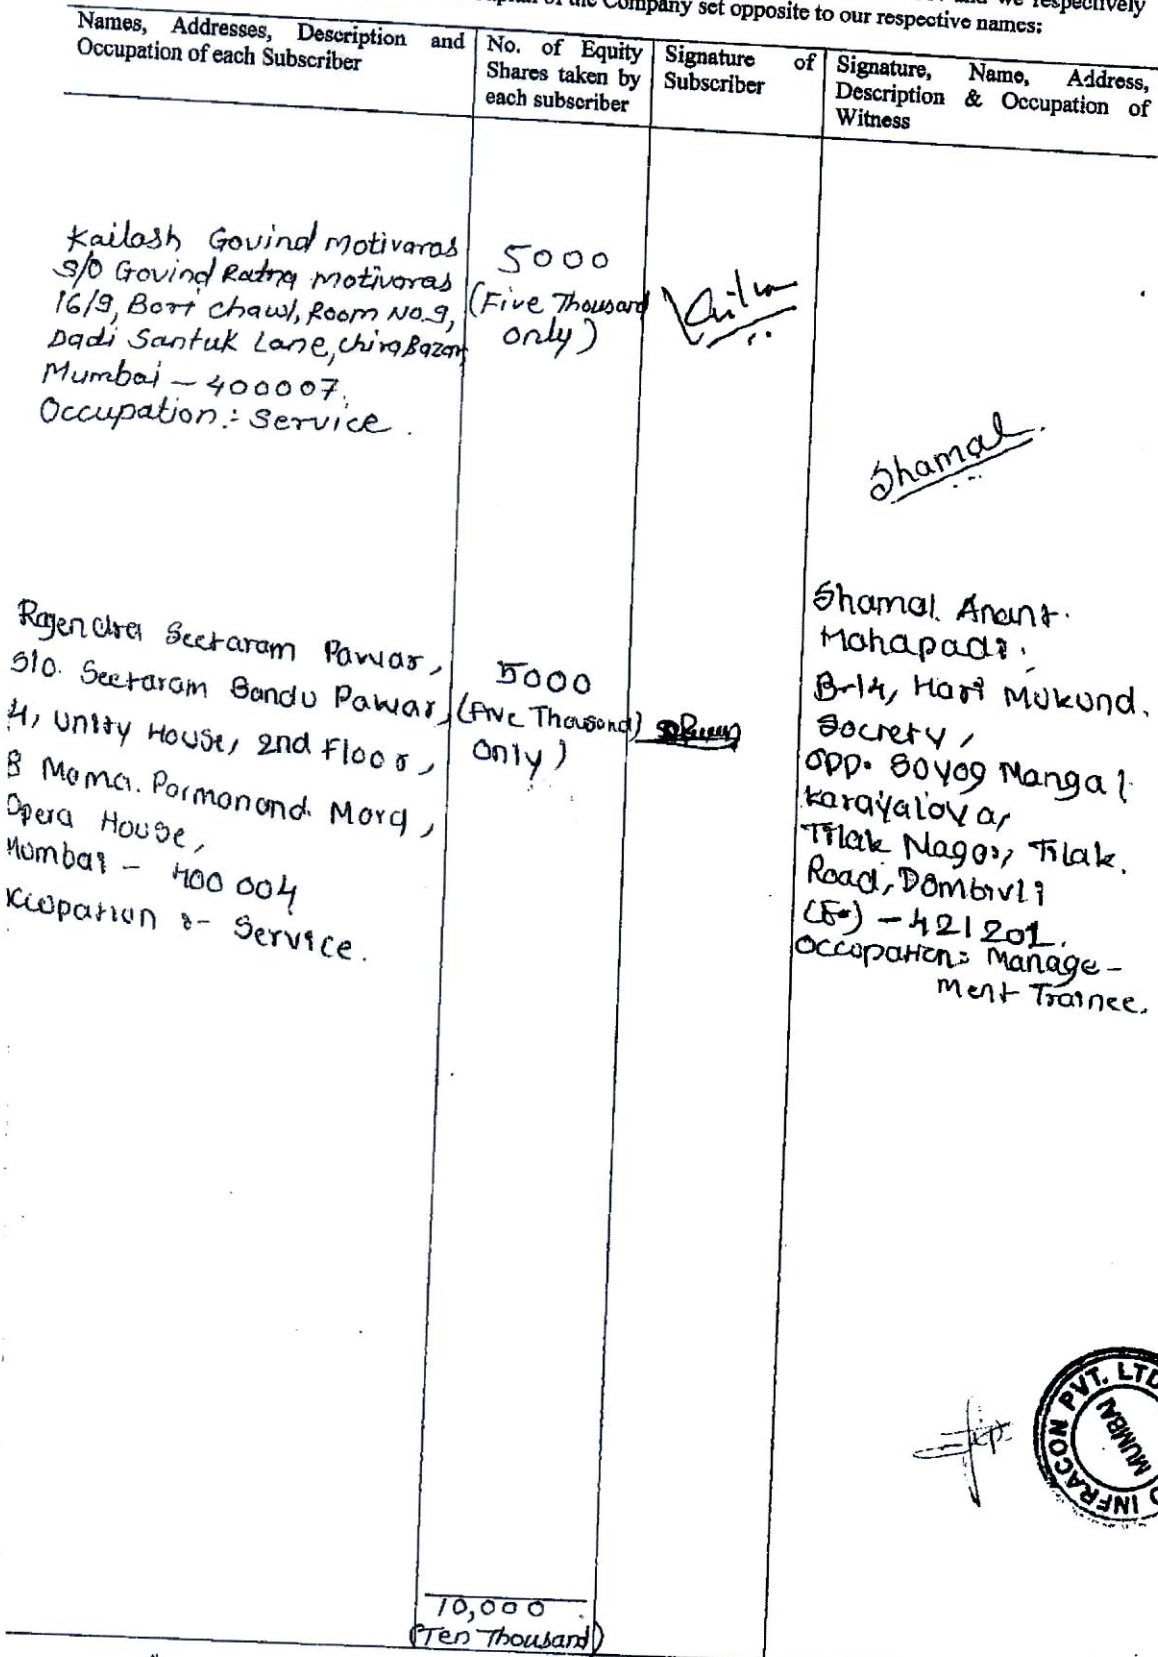 of the Company set opposite to our respective names:
respectively
Names, Addresses, Description and
Occupation of each Subscriber
No. of Equity
Shares taken by
each subscriber
Signature of
Subscriber
Signature, Name, Address,
Description & Occupation of
Witness
Kailash Govind Motivaras
S/O Govind Ratna Motivaras
16/9, Bori Chawl, Room No.9,
Dadi Santuk Lane, Chira Bazar
Mumbai - 400007.
Occupation:- Service.
5000
(Five Thousand
only)
Shamal.
Rajendra Seetaram Pawar,
S/o. Seetaram Bandu Pawar,
4, Unity House, 2nd Floor,
8 Mama. Parmanand. Marg,
Opera House,
Mumbai - 400 004
Occupation :- Service.
5000
(Five Thousand)
only)
Shamal. Anant.
Mahapadi.
B-14, Hari Mukund.
Society,
Opp. Soyog Mangal
Karayalaya,
Tilak Nagar, Tilak.
Road, Dombivli
(E.) - 421201.
Occupation: Manage-
ment Trainee.
INFRACON PVT. LTD
MUMBAI
10,000
(Ten Thousand)